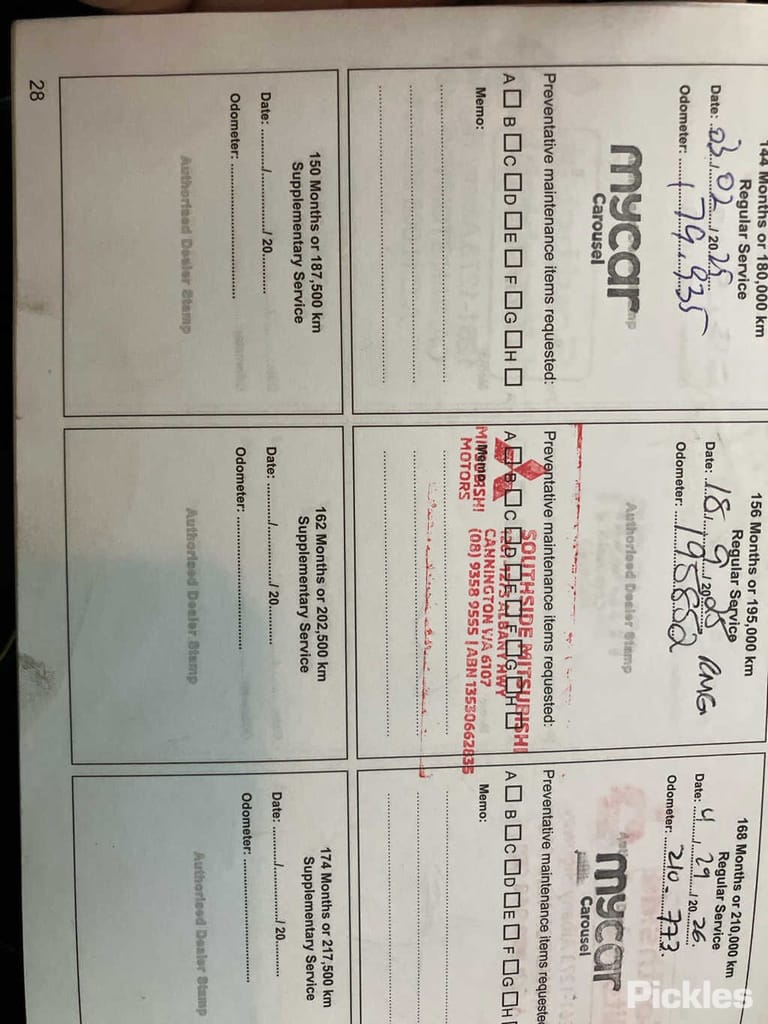 144 Months or 180,000 km
Regular Service
Date: 03/02/2025
Odometer: 179.935
mycar
Carousel
Preventative maintenance items requested:
A B C D E F G H
Memo:
150 Months or 187,500 km
Supplementary Service
Date: ........../............/ 20..........
Odometer: ..............................
Authorised Dealer Stamp
156 Months or 195,000 km
Regular Service
Date: 18/9/2025
Odometer: 195882
RMG
Authorised Dealer Stamp
Preventative maintenance items requested:
A B C D E F G H
Memo:
SOUTHSIDE MITSUBISHI
ALBANY HWY
CANNINGTON WA 6107
(08) 9358 9555 | ABN 13530662835
MITSUBISHI
MOTORS
162 Months or 202,500 km
Supplementary Service
Date: ........../............/ 20..........
Odometer: ..............................
Authorised Dealer Stamp
168 Months or 210,000 km
Regular Service
Date: 4/29/2026.
Odometer: 210-773.
mycar
Carousel
Preventative maintenance items requested
A B C D E F G H
Memo:
174 Months or 217,500 km
Supplementary Service
Date: ........../............/ 20..........
Odometer: ..............................
Authorised Dealer Stamp
28
Pickles